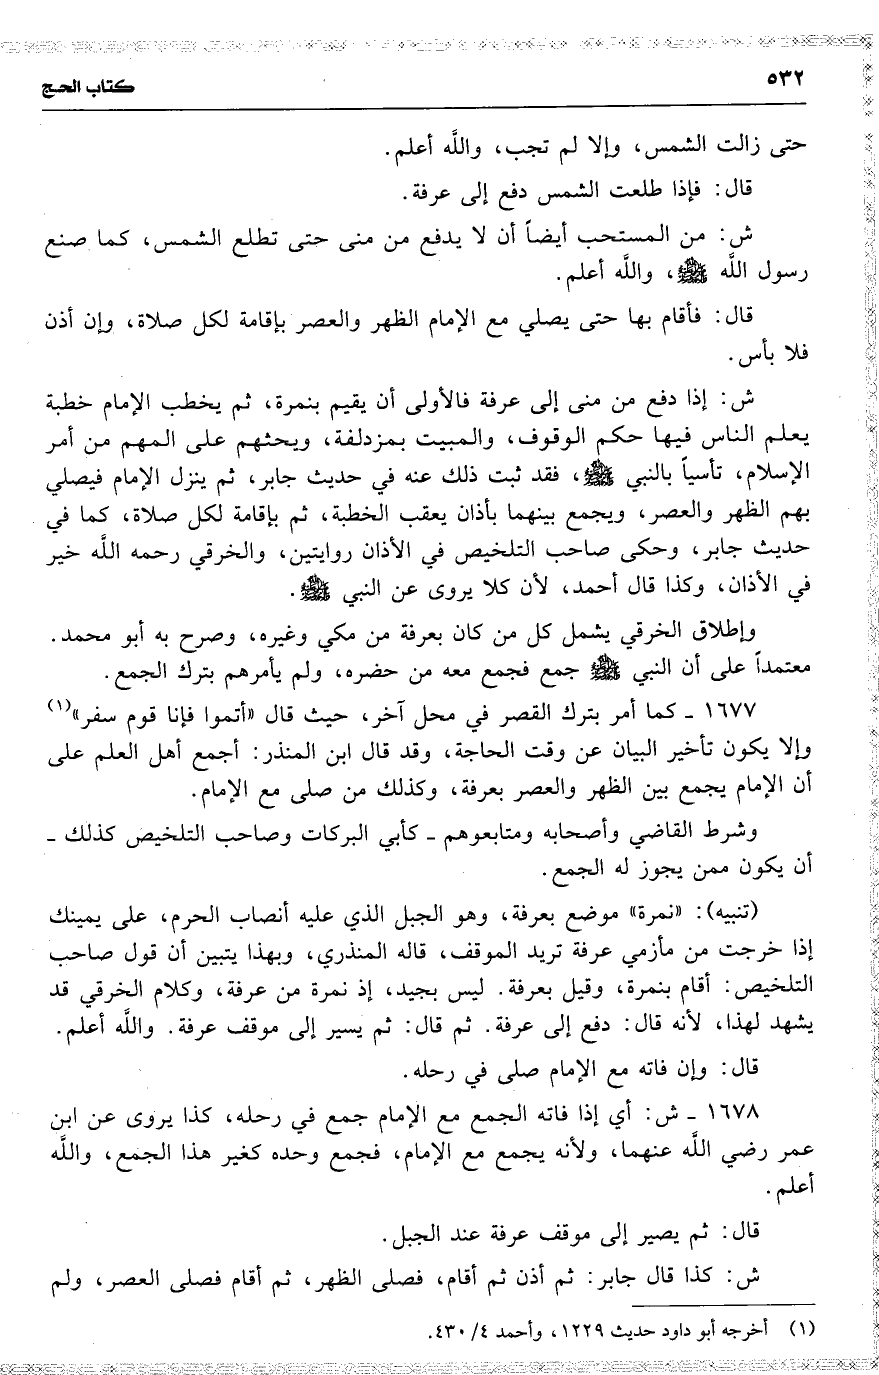 ٥٣٢
كتاب الحج
حتى زالت الشمس، وإلا لم تجب، واللَّه أعلم.
قال: فإذا طلعت الشمس دفع إلى عرفة.
ش: من المستحب أيضاً أن لا يدفع من منى حتى تطلع الشمس، كما صنع
رسول اللَّه ﷺ، واللَّه أعلم.
قال: فأقام بها حتى يصلي مع الإمام الظهر والعصر بإقامة لكل صلاة، وإن أذن
فلا بأس.
ش: إذا دفع من منى إلى عرفة فالأولى أن يقيم بنمرة، ثم يخطب الإمام خطبة
يعلم الناس فيها حكم الوقوف، والمبيت بمزدلفة، ويحثهم على المهم من أمر
الإسلام، تأسياً بالنبي ﷺ، فقد ثبت ذلك عنه في حديث جابر، ثم ينزل الإمام فيصلي
بهم الظهر والعصر، ويجمع بينهما بأذان يعقب الخطبة، ثم بإقامة لكل صلاة، كما في
حديث جابر، وحكى صاحب التلخيص في الأذان روايتين، والخرقي رحمه اللَّه خير
في الأذان، وكذا قال أحمد، لأن كلا يروى عن النبي ﷺ.
وإطلاق الخرقي يشمل كل من كان بعرفة من مكي وغيره، وصرح به أبو محمد.
معتمداً على أن النبي ﷺ جمع فجمع معه من حضره، ولم يأمرهم بترك الجمع.
١٦٧٧ ـ كما أمر بترك القصر في محل آخر، حيث قال «أتموا فإنا قوم سفر»(١)
وإلا يكون تأخير البيان عن وقت الحاجة، وقد قال ابن المنذر: أجمع أهل العلم على
أن الإمام يجمع بين الظهر والعصر بعرفة، وكذلك من صلى مع الإمام.
وشرط القاضي وأصحابه ومتابعوهم ـ كأبي البركات وصاحب التلخيص كذلك ـ
أن يكون ممن يجوز له الجمع.
(تنبيه): «نمرة» موضع بعرفة، وهو الجبل الذي عليه أنصاب الحرم، على يمينك
إذا خرجت من مأزمي عرفة تريد الموقف، قاله المنذري، وبهذا يتبين أن قول صاحب
التلخيص: أقام بنمرة، وقيل بعرفة. ليس بجيد، إذ نمرة من عرفة، وكلام الخرقي قد
يشهد لهذا، لأنه قال: دفع إلى عرفة. ثم قال: ثم يسير إلى موقف عرفة. واللَّه أعلم.
قال: وإن فاته مع الإمام صلى في رحله.
١٦٧٨ ـ ش: أي إذا فاته الجمع مع الإمام جمع في رحله، كذا يروى عن ابن
عمر رضي اللَّه عنهما، ولأنه يجمع مع الإمام، فجمع وحده كغير هذا الجمع، واللَّه
أعلم.
قال: ثم يصير إلى موقف عرفة عند الجبل.
ش: كذا قال جابر: ثم أذن ثم أقام، فصلى الظهر، ثم أقام فصلى العصر، ولم
(١) أخرجه أبو داود حديث ١٢٢٩، وأحمد ٤/ ٤٣٠.